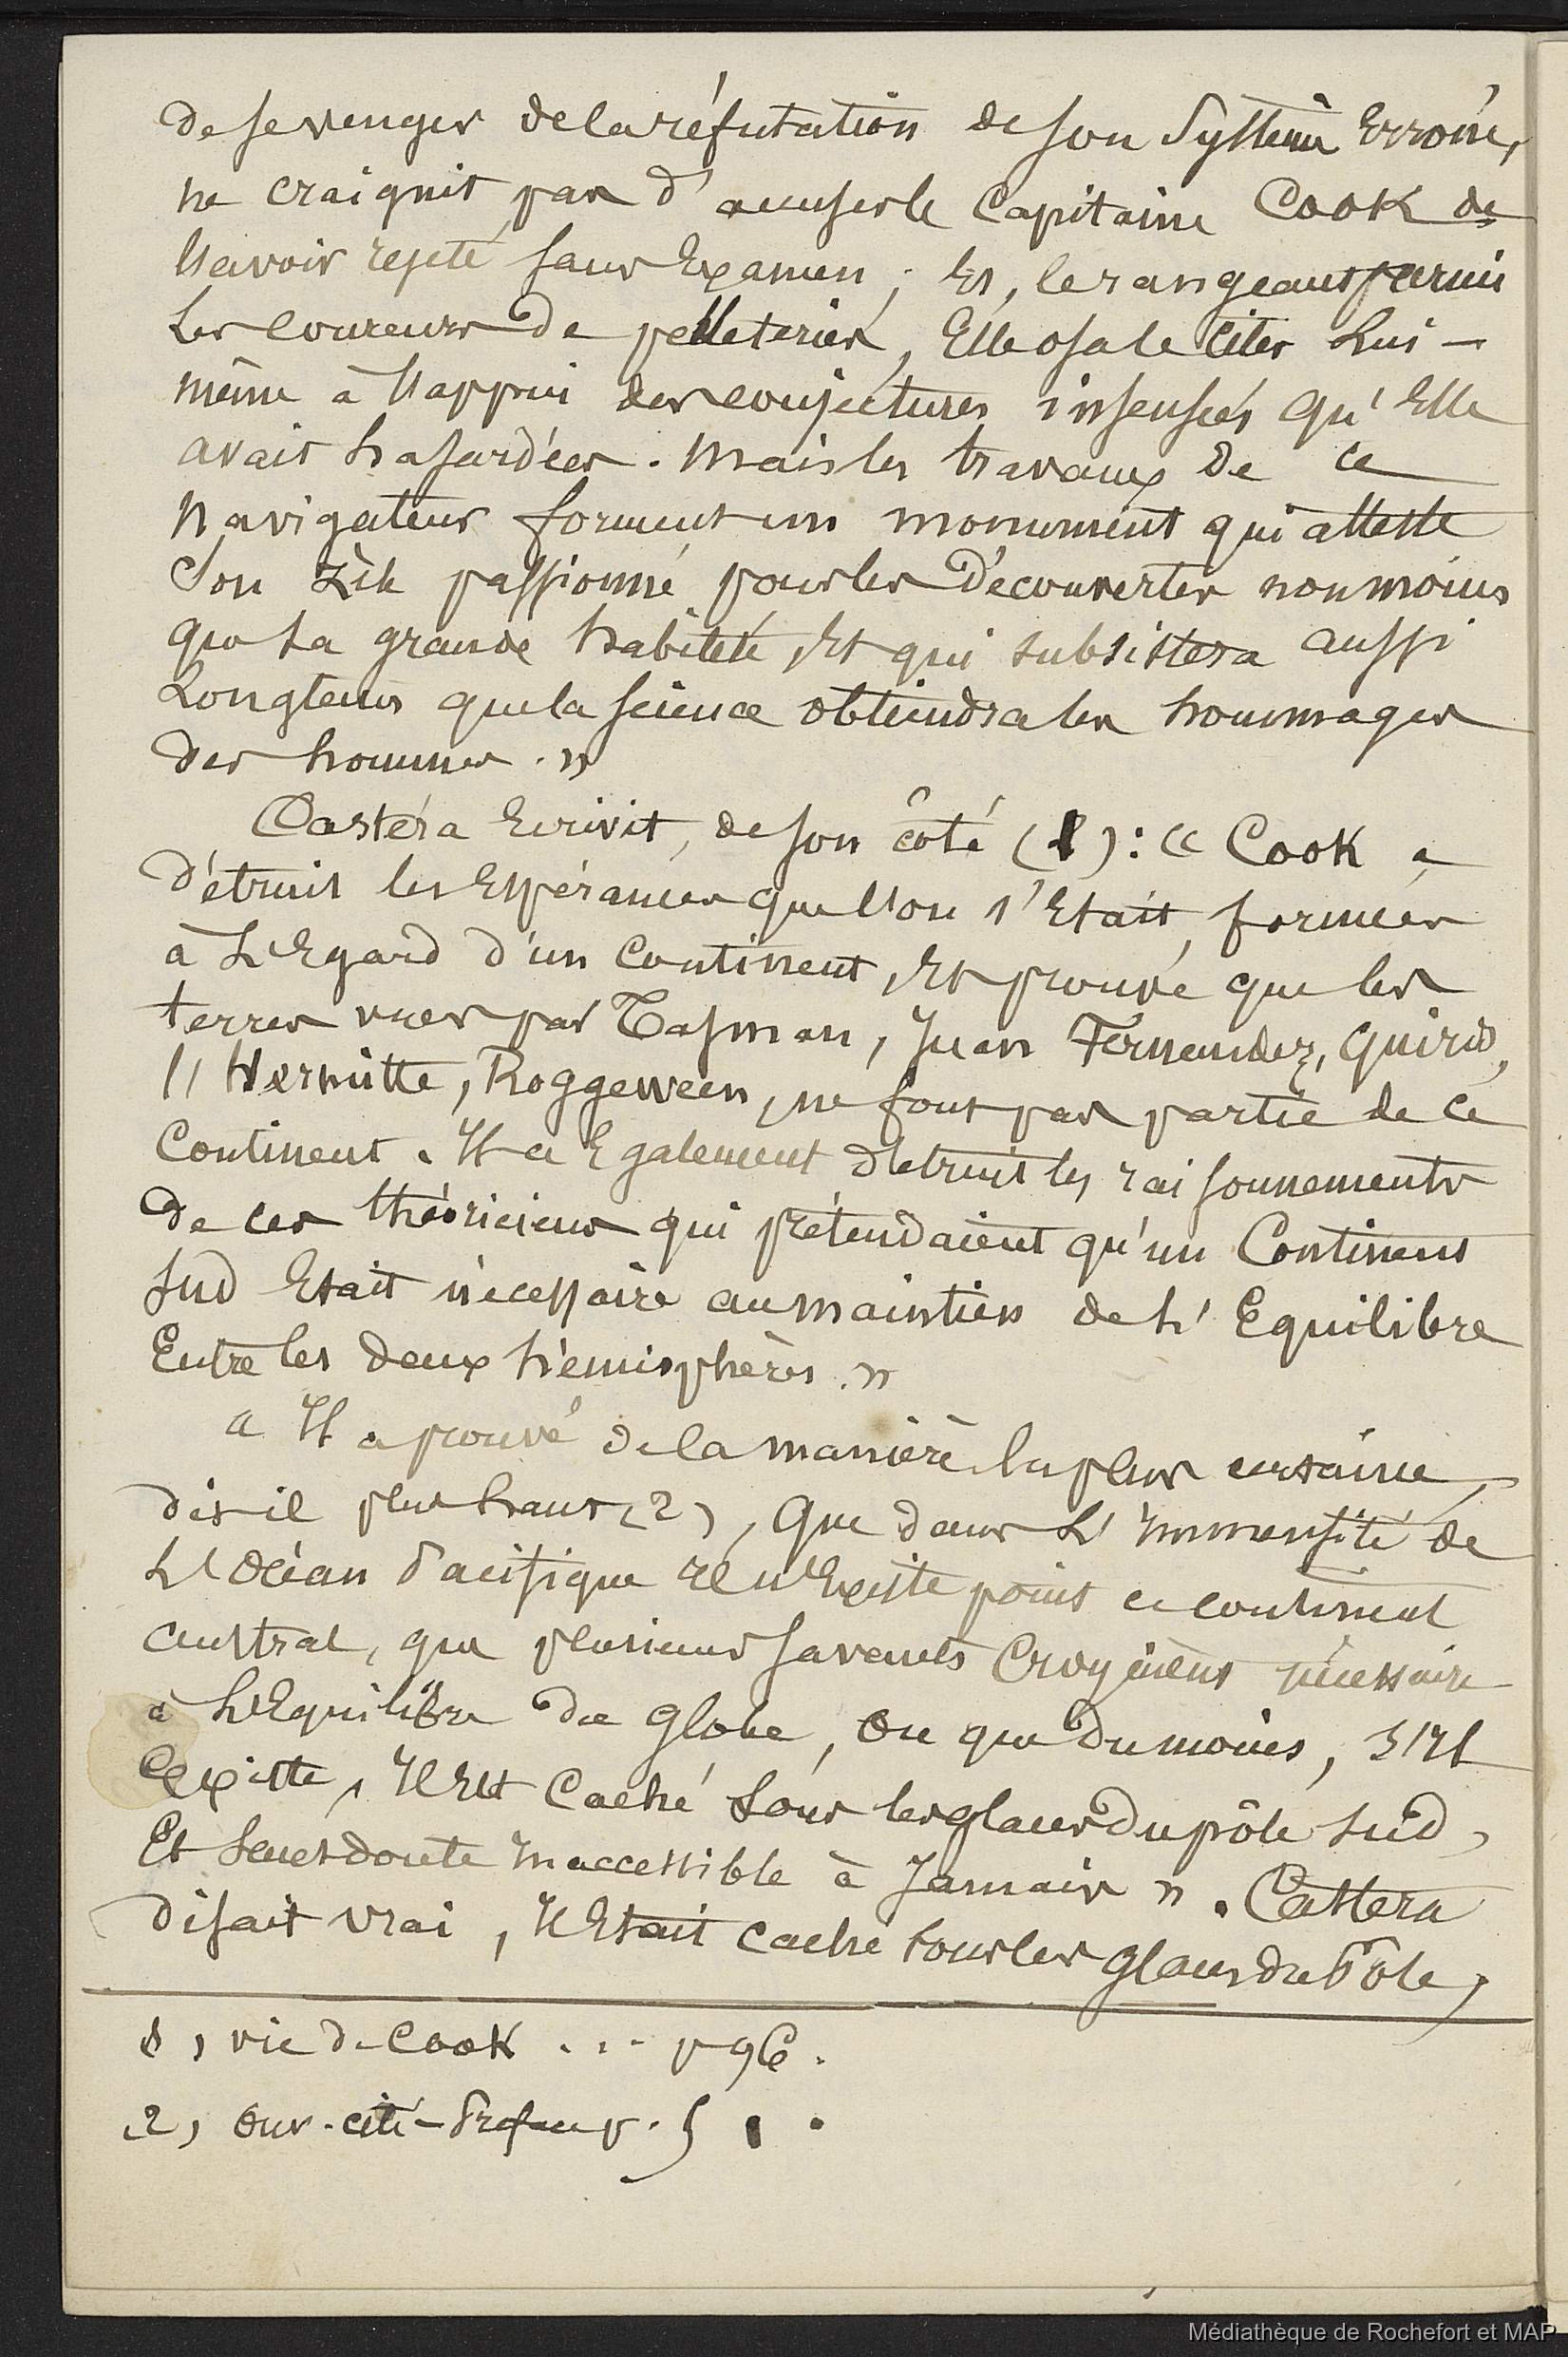 de se venger de la réfutation de son Système Erroné,
ne craignit pas d'accuser le Capitaine Cook de
l'avoir rejeté sans Examen ; Et, le rangeant parmi
les coureurs de pelleteries, Elle osa le citer Lui-
même à l'appui des conjectures insensées qu'Elle
avait hasardées. Mais les travaux de ce
Navigateur forment un monument qui atteste
Son zèle passionné pour les découvertes non moins
que sa grande habileté, Et qui subsistera aussi
Longtems que la science obtiendra les hommages
des hommes. »
Castéra Ecrivit, de son côté (1) : « Cook a
détruit les Espérances que l'on s'Etait formées
à L'Egard d'un Continent, Et prouvé que les
terres vues par Tasman, Juan Fernandez, Quiros,
l'Hermitte, Roggeween, ne font pas partie de ce
Continent. Il a Egalement détruit les raisonnements
de ces théoriciens qui prétendaient qu'un Continent
Sud Etait nécessaire au maintien de L'Equilibre
Entre les deux hémisphères. »
« Il a prouvé de la manière la plus certaine,
dit-il plus haut (2), Que dans L'Immensité de
L'Océan Pacifique Il n'Existe point ce continent
austral, que plusieurs savants Croyaient nécessaire
à L'Equilibre du Globe, Ou que du moins, s'Il
Existe, Il Est Caché Sous les glaces du pôle Sud,
Et sans doute Inaccessible à Jamais ». Castera
disait vrai, Il Etait caché sous les Glaces du Pôle,
1) vie de Cook ... p 96.
2) Ouv. cité - Préface p. 5
Médiathèque de Rochefort et MAP